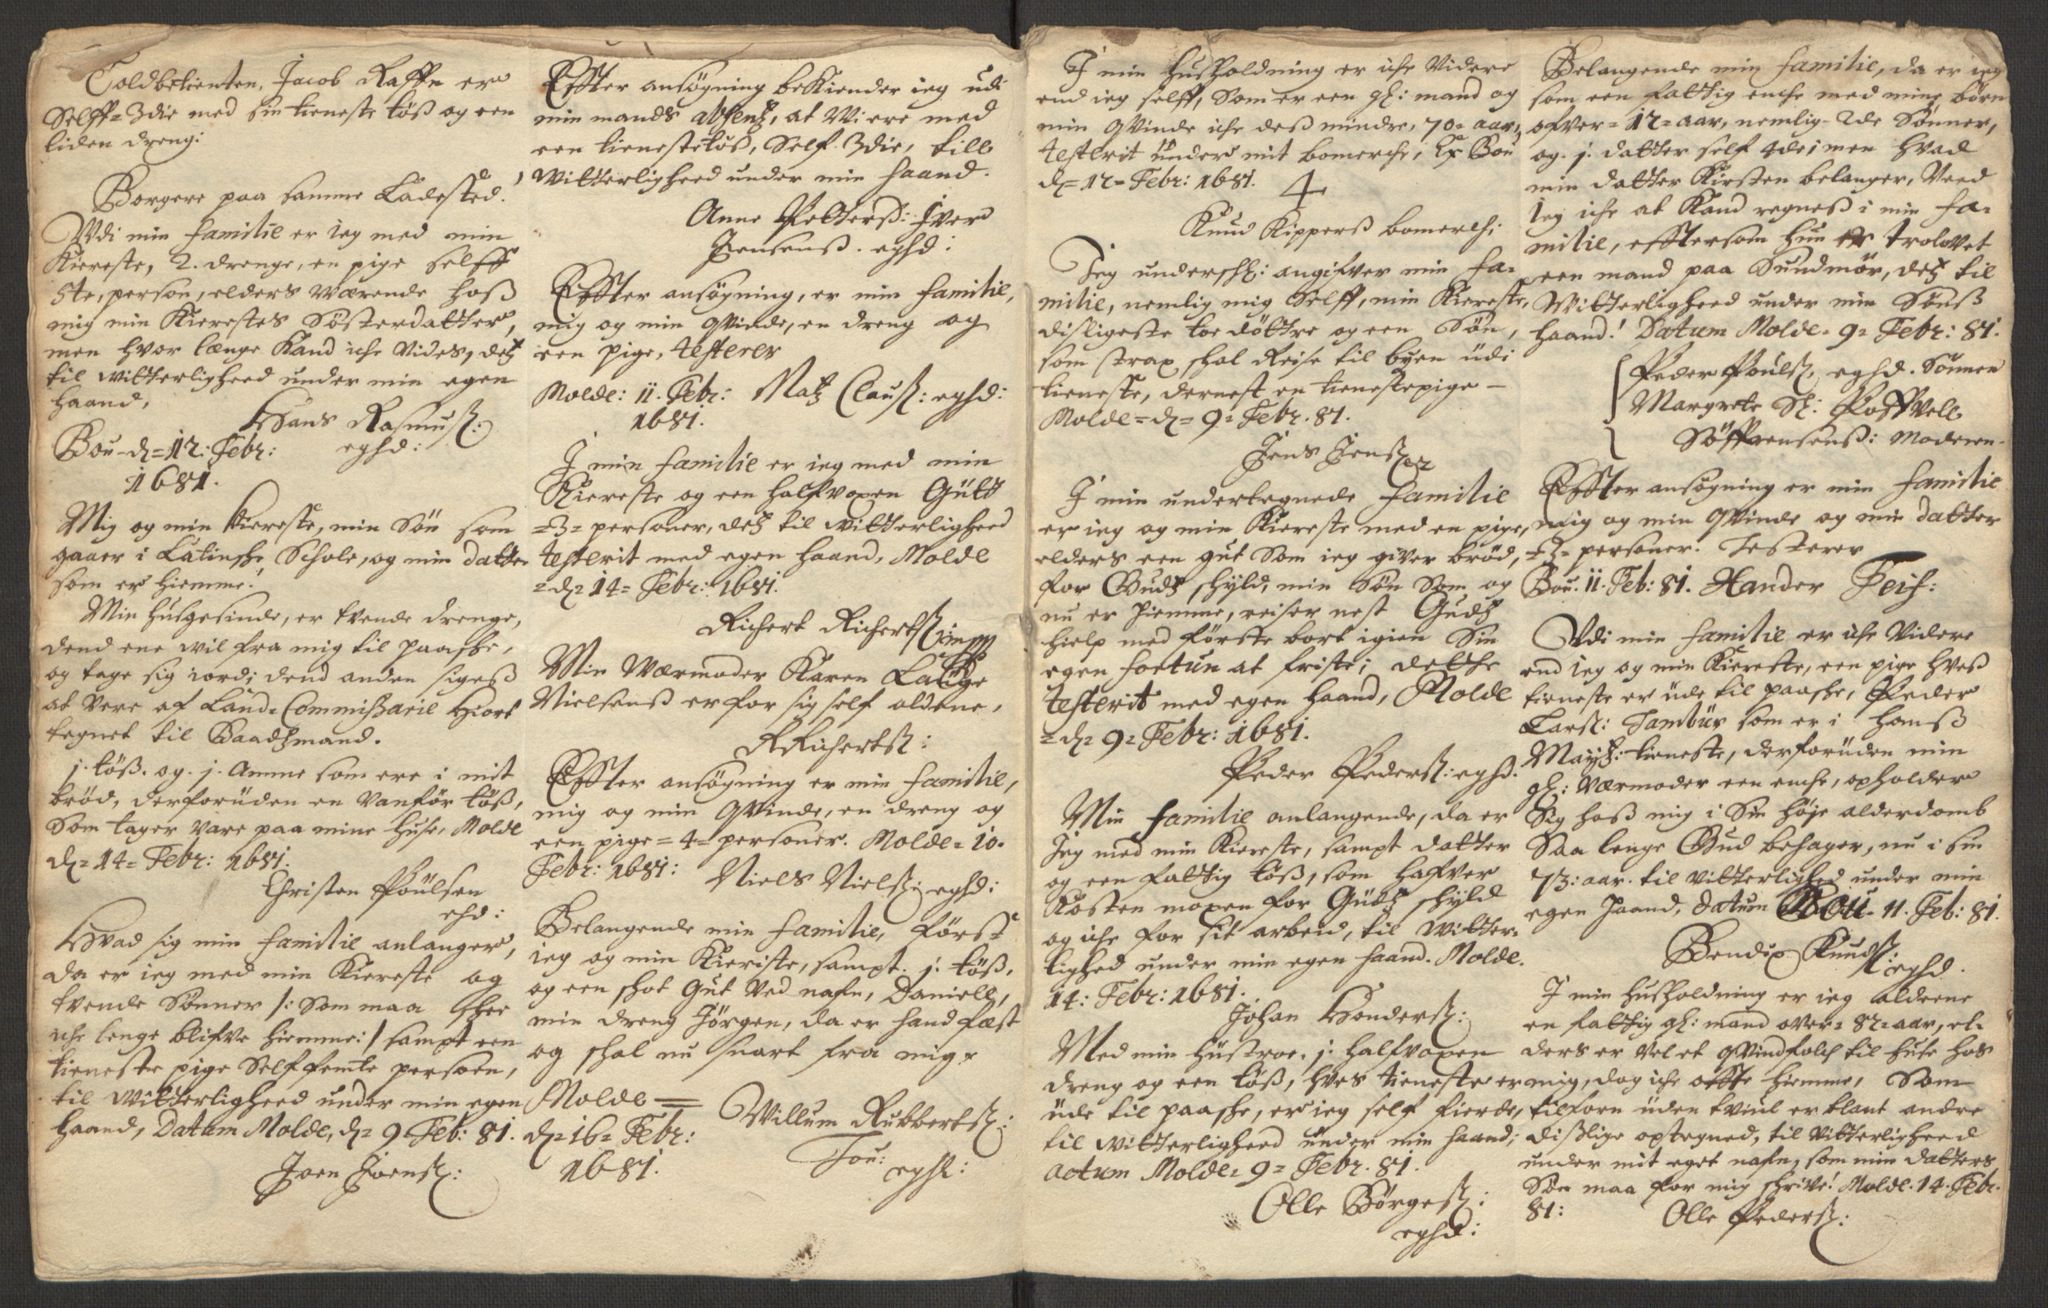 Toldbetienten, Jacob Raffn er
Selff 3die med sin tieneste töß og een
liden dreng:
Borgere paa samme Ladested!
Vdi min familie er ieg med min
Kiereste, 2. drenge, en pige selff
5te, person, elders værende hoß
mig min Kierestes Sösterdatter,
men hvor længe Kand iche Vides, detz
til witterligheed under min egen
haand,
Hans Rasmusß:
eghd:
Bou d= 12: Febr:
1681.
Mig og min Kiereste, min Sön som
gaaer i Latinsche Schole, og min datter
som er hiemme!
Min husgesinde, er tvende drenge,
dend ene wil fra mig til paasche,
og tage sig iord; dend anden siges
at vere af Land-Commissarie Hiort
tegnet til Baadzmand.
j. töß. og. j. Amme som ere i mit
bröd, derforüden en vanför töß,
Som tager vare paa mine huse, Molde
d= 14= Febr: 1681.
Christen Poülsen
ehd:
Hvad sig min familie anlanger,
da er ieg med min Kiereste og
tvende Sönner /: Som maa schee
iche lenge blifve hiemme:/ sampt een
tieneste pige Self femte persoen,
til witterligheed under min egen
haand, Datum Molde, d= 9= Feb: 81.
Joen Joensß:
Effter ansögning beKiender ieg udi
min mands absentz, at Wi ere med
een tienestetös, Self 3die, till
witterligheed under min haand.
Anne Pettersß: Iver
Jensens. eghd:
Effter ansögning, er min familie,
mig og min qvinde, en dreng og
een pige, testerer
Molde: 11. Febr: Matz Clausß: eghd:
1681.
I min familie er ieg med min
Kiereste og een halfvoxen Gütt
=3= personer, detz til witterligheed
testerit med egen haand, Molde
=d= 14= Febr: 1681.
Richert Richertsß
Min Værmoder Karen Lauge
Nielsens er for sig self aldene,
RRichertsß:
Effter ansögning er min familie,
mig og min qvinde, en dreng og
een pige =4= personer. Molde= 10.
Febr: 1681: Niels Nielsß: eghd:
Belangende min familie, först
ieg og min Kieriste, sampt. j: töß,
og een schot Gut ved nafn, Daniell,
min dreng Jörgen, da er hand fæst
og schal nu snart fra mig
Molde
d= 16= Febr: Willum Rubbertsß:
1681. Tou: eghd:
I min husholdning er iche Videre
end ieg selff, Som er een gl: mand og
min qvinde iche dess mindre, 70= aar,
testerit under mit bomerche, Ex Bou
d= 12= Febr: 1681.
4
Knud Kippers bomerch:
Jeg underschr: angifver min fa-
milie, nemlig mig Selff, min Kiereste,
disligeste toe döttre og een Sön,
som strax schal Reise til byen üdi
tieneste, dernest en tienestepige
Molde= d= 9= Febr. 81.
Jens Jensß
I min undertegnede familie
er ieg og min Kiereste med en pige,
elders een gut Som ieg giver bröd,
for Gudz schyld, min Sön Som og
nu er hiemme, reiser nest Gudz
hielp med förste bort igien Sin
egen fortun at friste; dette
testerit med egen haand, Molde
=d= 9= Febr: 1681.
Peder Pedersß: eghd.
Min familie anlangende, da er
Jeg med min Kiereste, sampt datter
og een fattig töß, som hafver
Kosten moxen for Gudz schyld
og iche for sit arbeid, til witter-
lighed under min egen haand. Molde.
14: Febr: 1681.
Johan Hondersß:
Med min hüstroe. j: halfvoxen
dreng og een töß, hves tieneste er
üde til paasche, er ieg self fierde,
til witterligheed under min haand,
actum Molde= 9= Febr. 81.
Olle Börgesß:
eghd:
Belangende min familie, da er ieg
som een fattig enche med mine börn
ofver= 12= aar, nemlig= 2de Sönner,
og. j. datter self 4de; men hvad
min datter Kirsten belanger, Veed
Jeg iche at Kand regnes i min fa-
milie, effttersom hun er trolovet
een mand paa Sundmör, detz til
witterligheed under min Söns
haand! Datum Molde= 9= Febr: 81.
Peder Poülsß, eghd. Sönnen
Margrete Sl: Poffvell
Söffrensens: Moderen
Effter ansögning er min familie
mig og min qvinde og min datter
=3= personer. Testerer
Bou. 11. Feb: 81. Hander Feis:
Vdi min familie er iche Videre
end ieg og min Kiereste, een pige hves
tieneste er üde til paasche, Peder
Larsß: Tambür som er i Hans
Mayts: tieneste, derforüden min
gl: værmoder een enche, opholder
Sig hos mig i Sin höje alderdomb
Saa lenge Gud behager, nu i sin
73: aar. til vitterlighed under min
egen haand, datum Bou. 11. Feb: 81.
Bendix Knudsß: eghd.
I min husholdning er ieg aldeene
en fattig gl: mand over= 82= aar, el-
ders er vel et qvindfolch til huse hos
mig, dog iche offte hiemme, Som
tilforn üden tviul er blant andre
dislige optegned, til vitterligheed
under mit eget nafn, som min datters
Sön maa for mig schrive! Molde. 14. Febr.
81: Olle Pedersß: